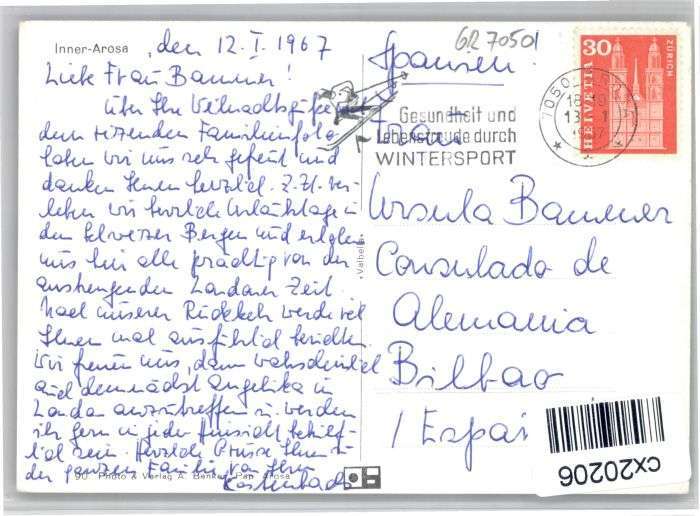 Inner-Arosa
, den 12. I. 1967
Liebe Frau Bammer!
Über Ihre Weihnachtsgrüße
dem reizenden Familienfoto
haben wir uns sehr gefreut und
danken Ihnen herzlich. Z.Zt. ver-
leben wir herrliche Urlaubstage in
den Schweizer Bergen und erholen
uns hier alle prächtig von der
anstrengenden Londoner Zeit.
Nach unserer Rückkehr werde ich
Ihnen mal ausführlich berichten.
Wir freuen uns, dann wahrscheinlich
auch demnächst Angelika in
London anzutreffen u. werden
ihr gern in jeder Hinsicht behilf-
lich sein. Herzliche Grüsse Ihnen u.
der ganzen Familie von Ihren
90 Photo & Verlag A. Pap. Arosa
GR 70501
Spanien
Gesundheit und
Lebensfreude durch
WINTERSPORT
7050
1967
30
HELVETIA
ZÜRICH
Frau
Ursula Bammer
Consulado de
Alemania
Bilbao
/ Espa
«Valbella»
cx20206